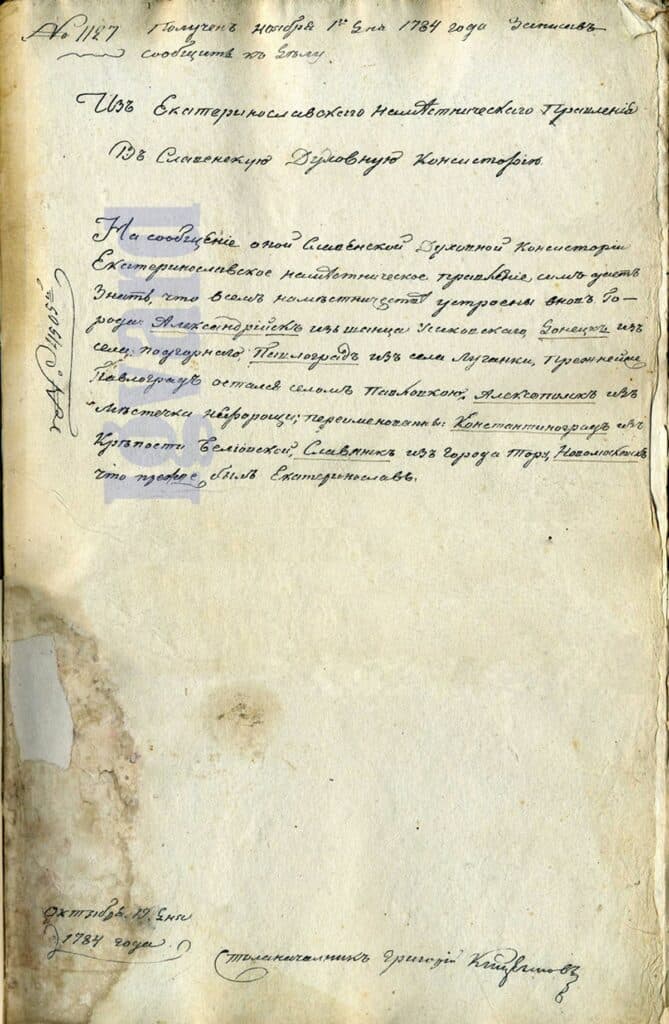 № 1127 Полученъ ноября 1го дня 1784 года Записавъ
сообщить къ дѣлу
Изъ Екатеринославскаго намѣстническаго Правленія
Въ Славенскую Духовную Консисторію
На сообщеніе оной Славенской Духовной Консисторіи
Екатеринославское намѣстническое правленіе симъ даетъ
Знать, что всемъ намѣстничествѣ устроены вновь Го-
рода: Александрійскъ изъ шанца Усиковскаго, Донецкъ изъ
села подгорнаго Павлоградъ изъ села Луганки, прежней
Павлоградъ остался селомъ Павловкою, Алексополь изъ
мѣстечка нефорощи; переименованны: Константиноградъ изъ
Крѣпости Белiовской, Славянскъ изъ города Тору, Новомосковскъ
что прежде былъ Екатеринославъ.
октября 19 дня
1784 года
Столоначалникъ григорій